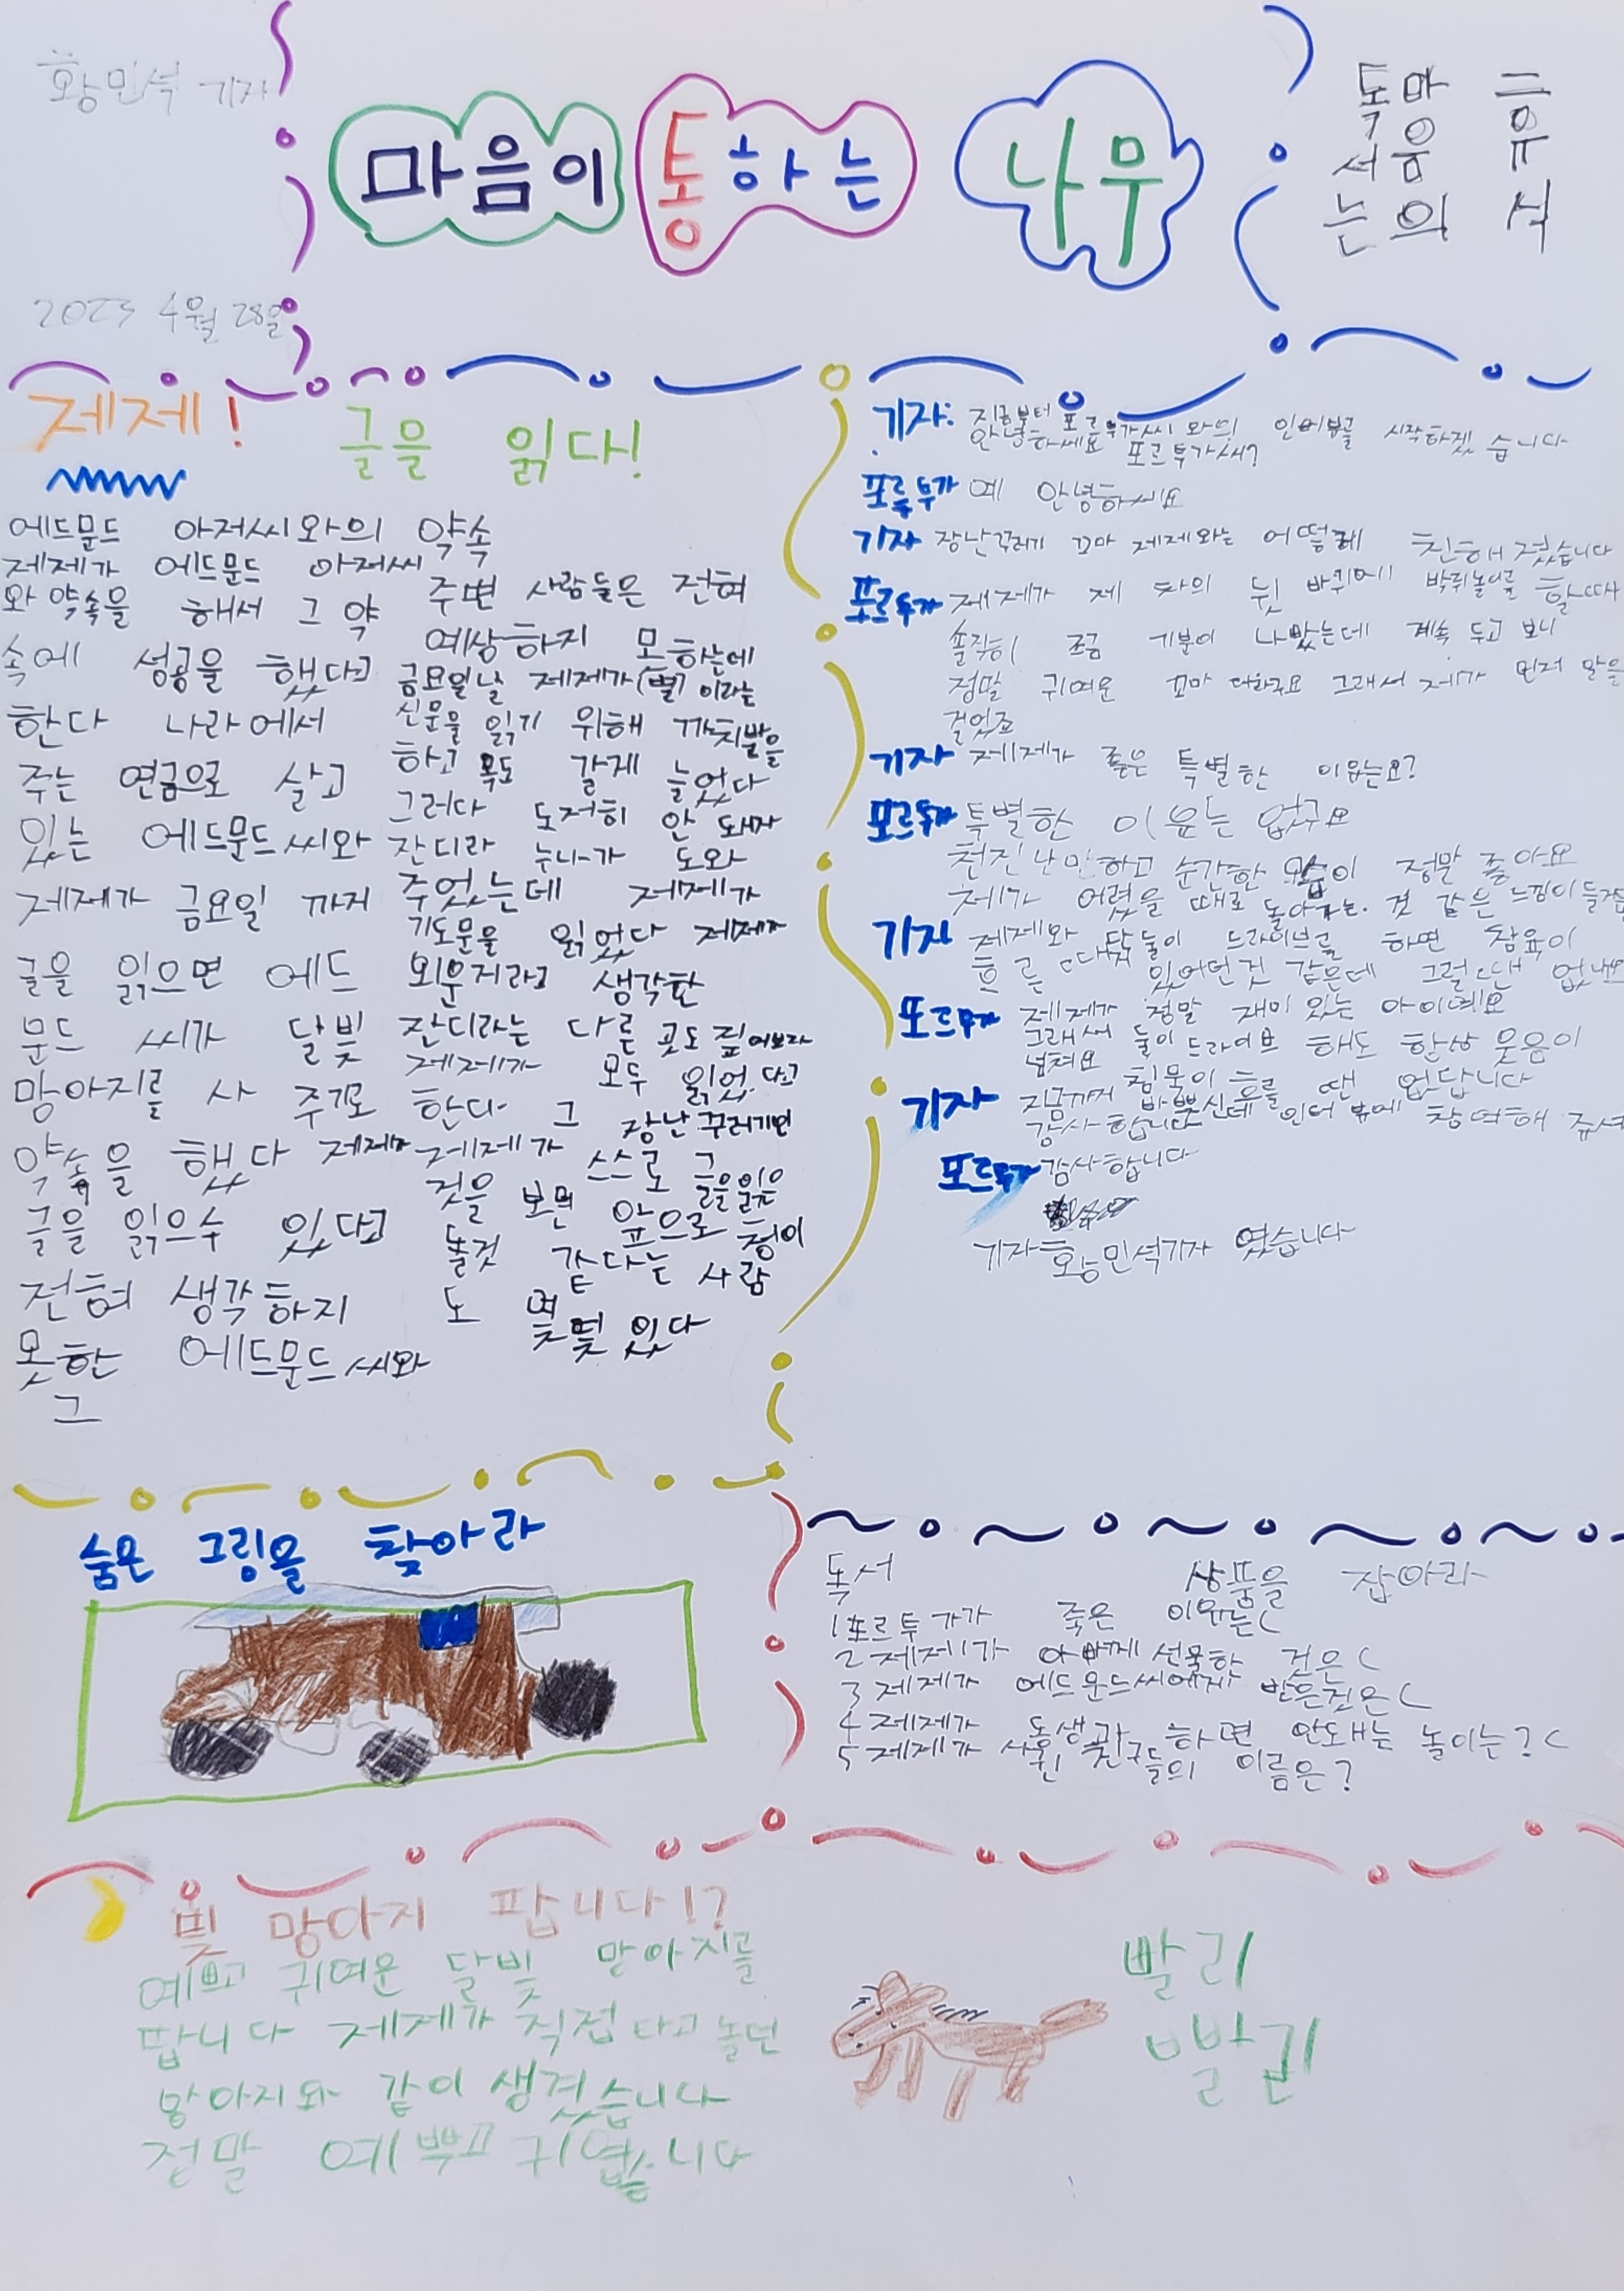 황민석 기자
2023 4월 28일
마음이 통하는 나무
독서는
마음의
휴식
제제!
글을 읽다!
에드문드 아저씨와의 약속
제제가 에드문드 아저씨
와 약속을 해서 그 약
속에 성공을 했다고
한다 나라에서
주는 연금으로 살고
있는 에드문드씨와
제제가 금요일 까지
글을 읽으면 에드
문드 씨가 달빛
망아지를 사 주기로
약속을 했다 제제가
글을 읽으수 있다고
전혀 생각하지
못한 에드문드씨와
그
주변 사람들은 전혀
예상하지 못하는데
금요일날 제제가(별) 이라는
신문을 읽기 위해 까치발을
하고 목도 길게 늘었다
그러다 도저히 안 돼
잔디라 누나가 도와
주었는데 제제가
기도문을 읽었다 제제가
외운거라고 생각한
잔디라는 다른 곳도 짚어보라
제제가 모두 읽었다고
한다 그 장난꾸러기인
제제가 스스로 글을 읽은
것을 보면 앞으로 철이
놀것 같다는 사람
도 몇몇 있다
기자: 지금부터 포르투가씨 와의 인터뷰를 시작하겠습니다
안녕하세요 포르투가씨?
포루투가 예 안녕하세요
기자 장난꾸러기 꼬마 제제와는 어떻게 친해졌습니다
포르투가 제제가 제 차의 뒷 바퀴에 박쥐놀이를 할때
솔직히 조금 기분이 나빴는데 계속 두고 보니
정말 귀여운 꼬마 더라구요 그래서 제가 먼저 말을
걸었죠
기자 제제가 좋은 특별한 이유는요?
포르투가 특별한 이유는 없구요
천진난만하고 순수한 모습이 정말 좋아요
제가 어렸을 때로 돌아가는 것 같은 느낌이 들거든
기자 제제와 단둘이 드라이브를 하면 침묵이
흐를 때가 있었던것 같은데 그럴땐 없나요
포르투가 제제가 정말 재미 있는 아이예요
그래서 둘이 드라이브 해도 항상 웃음이
넘쳐요 침묵이 흐를 땐 없답니다
기자 지금까지 바쁘신데 인터뷰에 참여해 주셔
감사합니다
포르투가 감사합니다
기자 황민석기자 였습니다
숨은 그림을 찾아라
독서 상품을 잡아라
1 포르투가가 죽은 이유는(
2 제제가 아빠께 선물한 것은(
3 제제가 에드문드씨에게 받은것은(
4 제제가 동생과 하면 안돼는 놀이는?(
5 제제가 사귄 친구들의 이름은?
빛 망아지 팝니다!?
예쁘고 귀여운 달빛 망아지를
팝니다 제제가 직접 타고 놀던
망아지와 같이 생겼습니다
정말 예쁘고 귀엽습니다
빨리
빨리